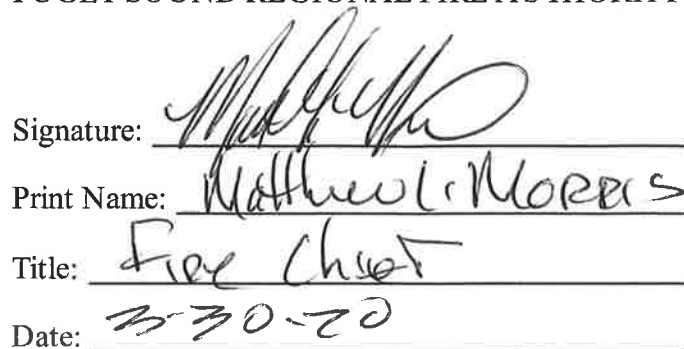 PUGET SOUND REGIONAL FIRE AUTHORITY
Signature:
Print Name: Matthew L. Morris
Title: Fire Chief
Date: 3-30-20